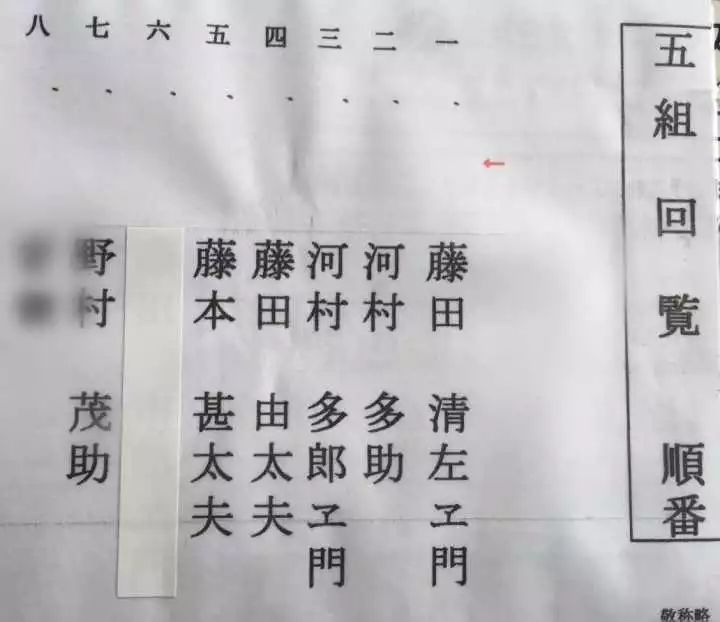 五組 回覧 順番
一、 藤田 清左ヱ門
二、 河村 多助
三、 河村 多郎ヱ門
四、 藤田 由太夫
五、 藤本 甚太夫
六、
七、 野村 茂助
八、
敬称略